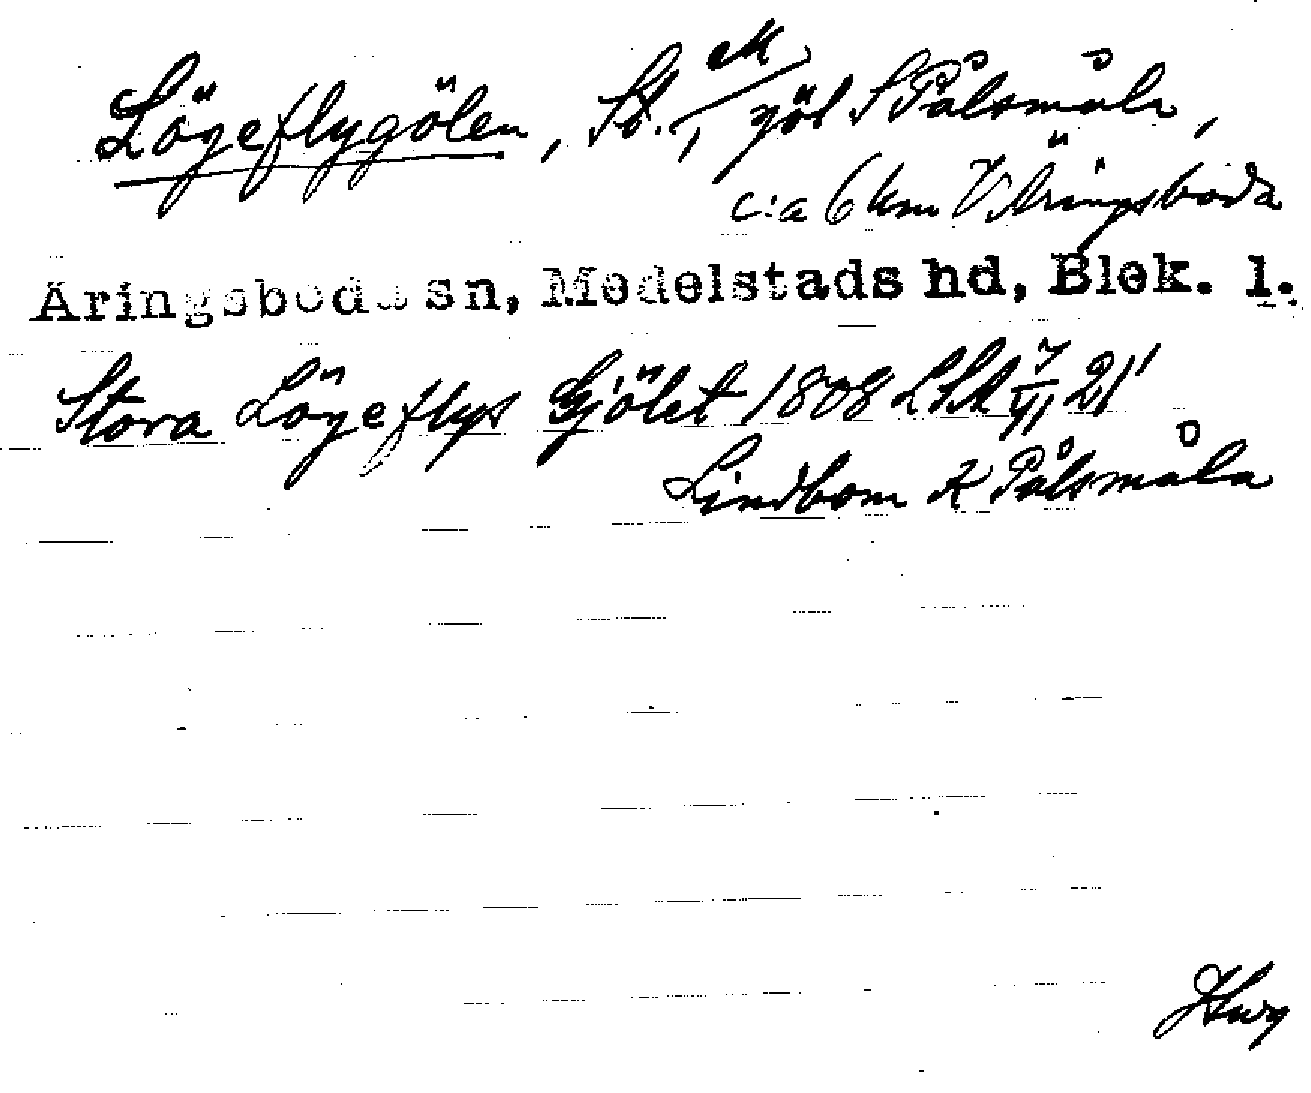 Lögeflygölen, St., ek / göl S Pålsmåla,
c:a 6 km V Äringsboda
Äringsboda sn, Medelstads hd, Blek. l.
Stora Lögeflys Gjölet 1808 LSA 7/VI 21'
Lindbom K Pålsmåla